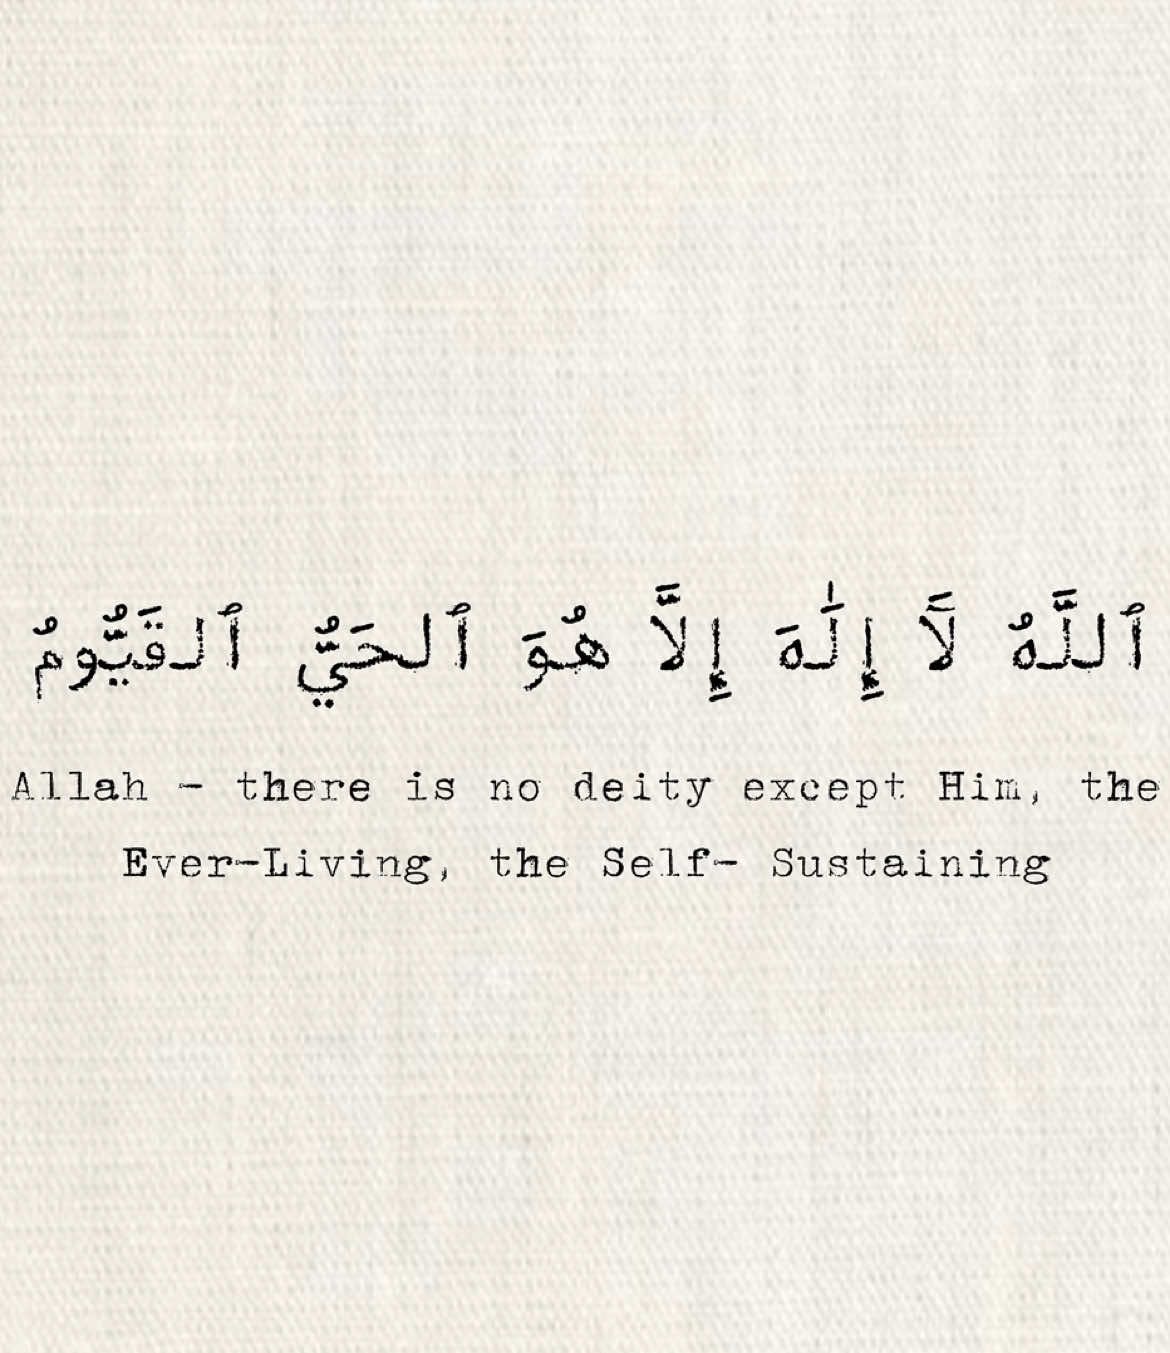 ٱللَّهُ لَا إِلَٰهَ إِلَّا هُوَ ٱلحَيُّ ٱلقَيُّومُ
Allah - there is no deity except Him, the
Ever-Living, the Self- Sustaining